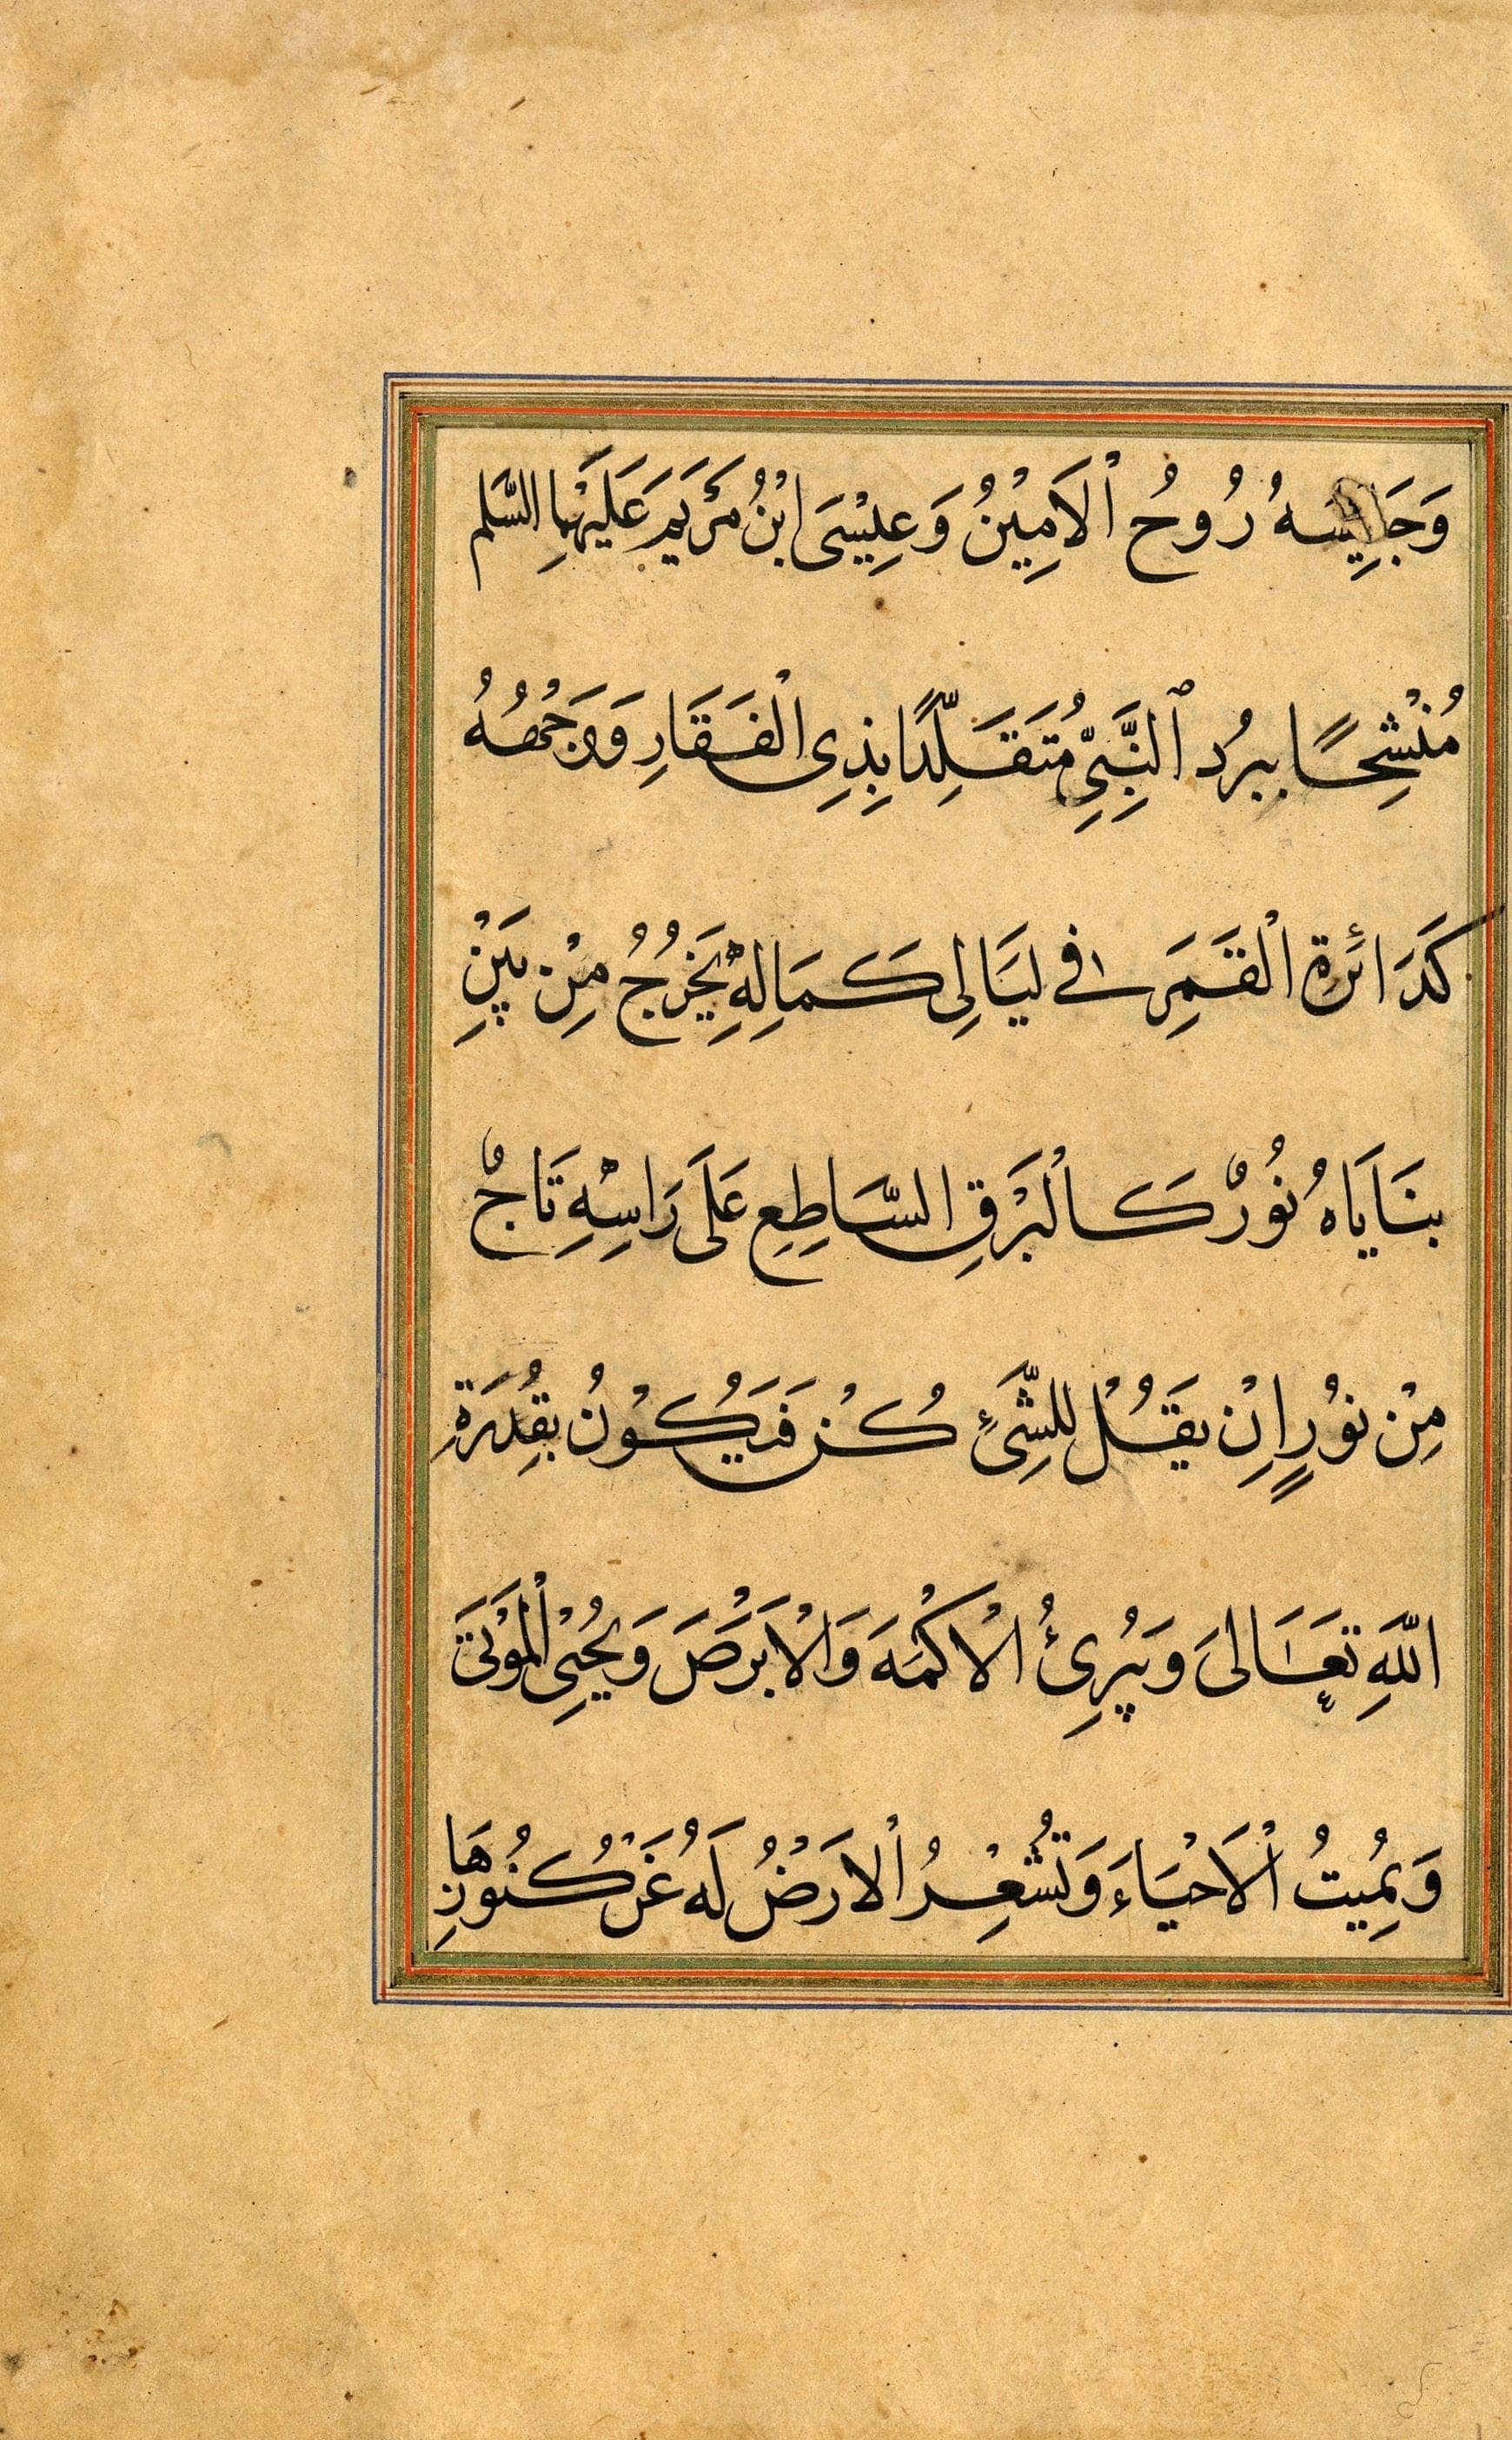 وَجَلِيسَهُ رُوحُ ٱلْاَمِيْنُ وَعِيْسَى ابْنُ مَرْيَمَ عَلَيْهِمَا السَّلم
مُنْشِحًا بِبرُد ٱلنَّبِيِّ مُتَقَلِّدًا بِذِى الْفَقَارِ وَوَجْهُهُ
كَدَائرَة الْقَمَرِ فى لَيَالِى كَمَالِهِ يَخْرُجُ مِنْ بَيْنِ
بنَايَاهُ نُورٌ كَالْبَرْقِ السَّاطِعِ عَلَى رَاسِهِ تَاجٌ
مِنْ نوُرٍ اِنْ يقَُلْ للشَّىءِ كُنْ فَيَكُوْنُ بقُِدرَةِ
اللهِ تَعَالىَ وَيبُرِئُ الْاَكْمَهَ وَالْاَبْرَصَ وَيُحْيِى الْمَوْتَى
وَيُمِيتُ ٱلْاَحْيَاءَ وَتُشْعِرُ ٱلْارَضُ لَهُ عَنْ كُنُوزِهَا